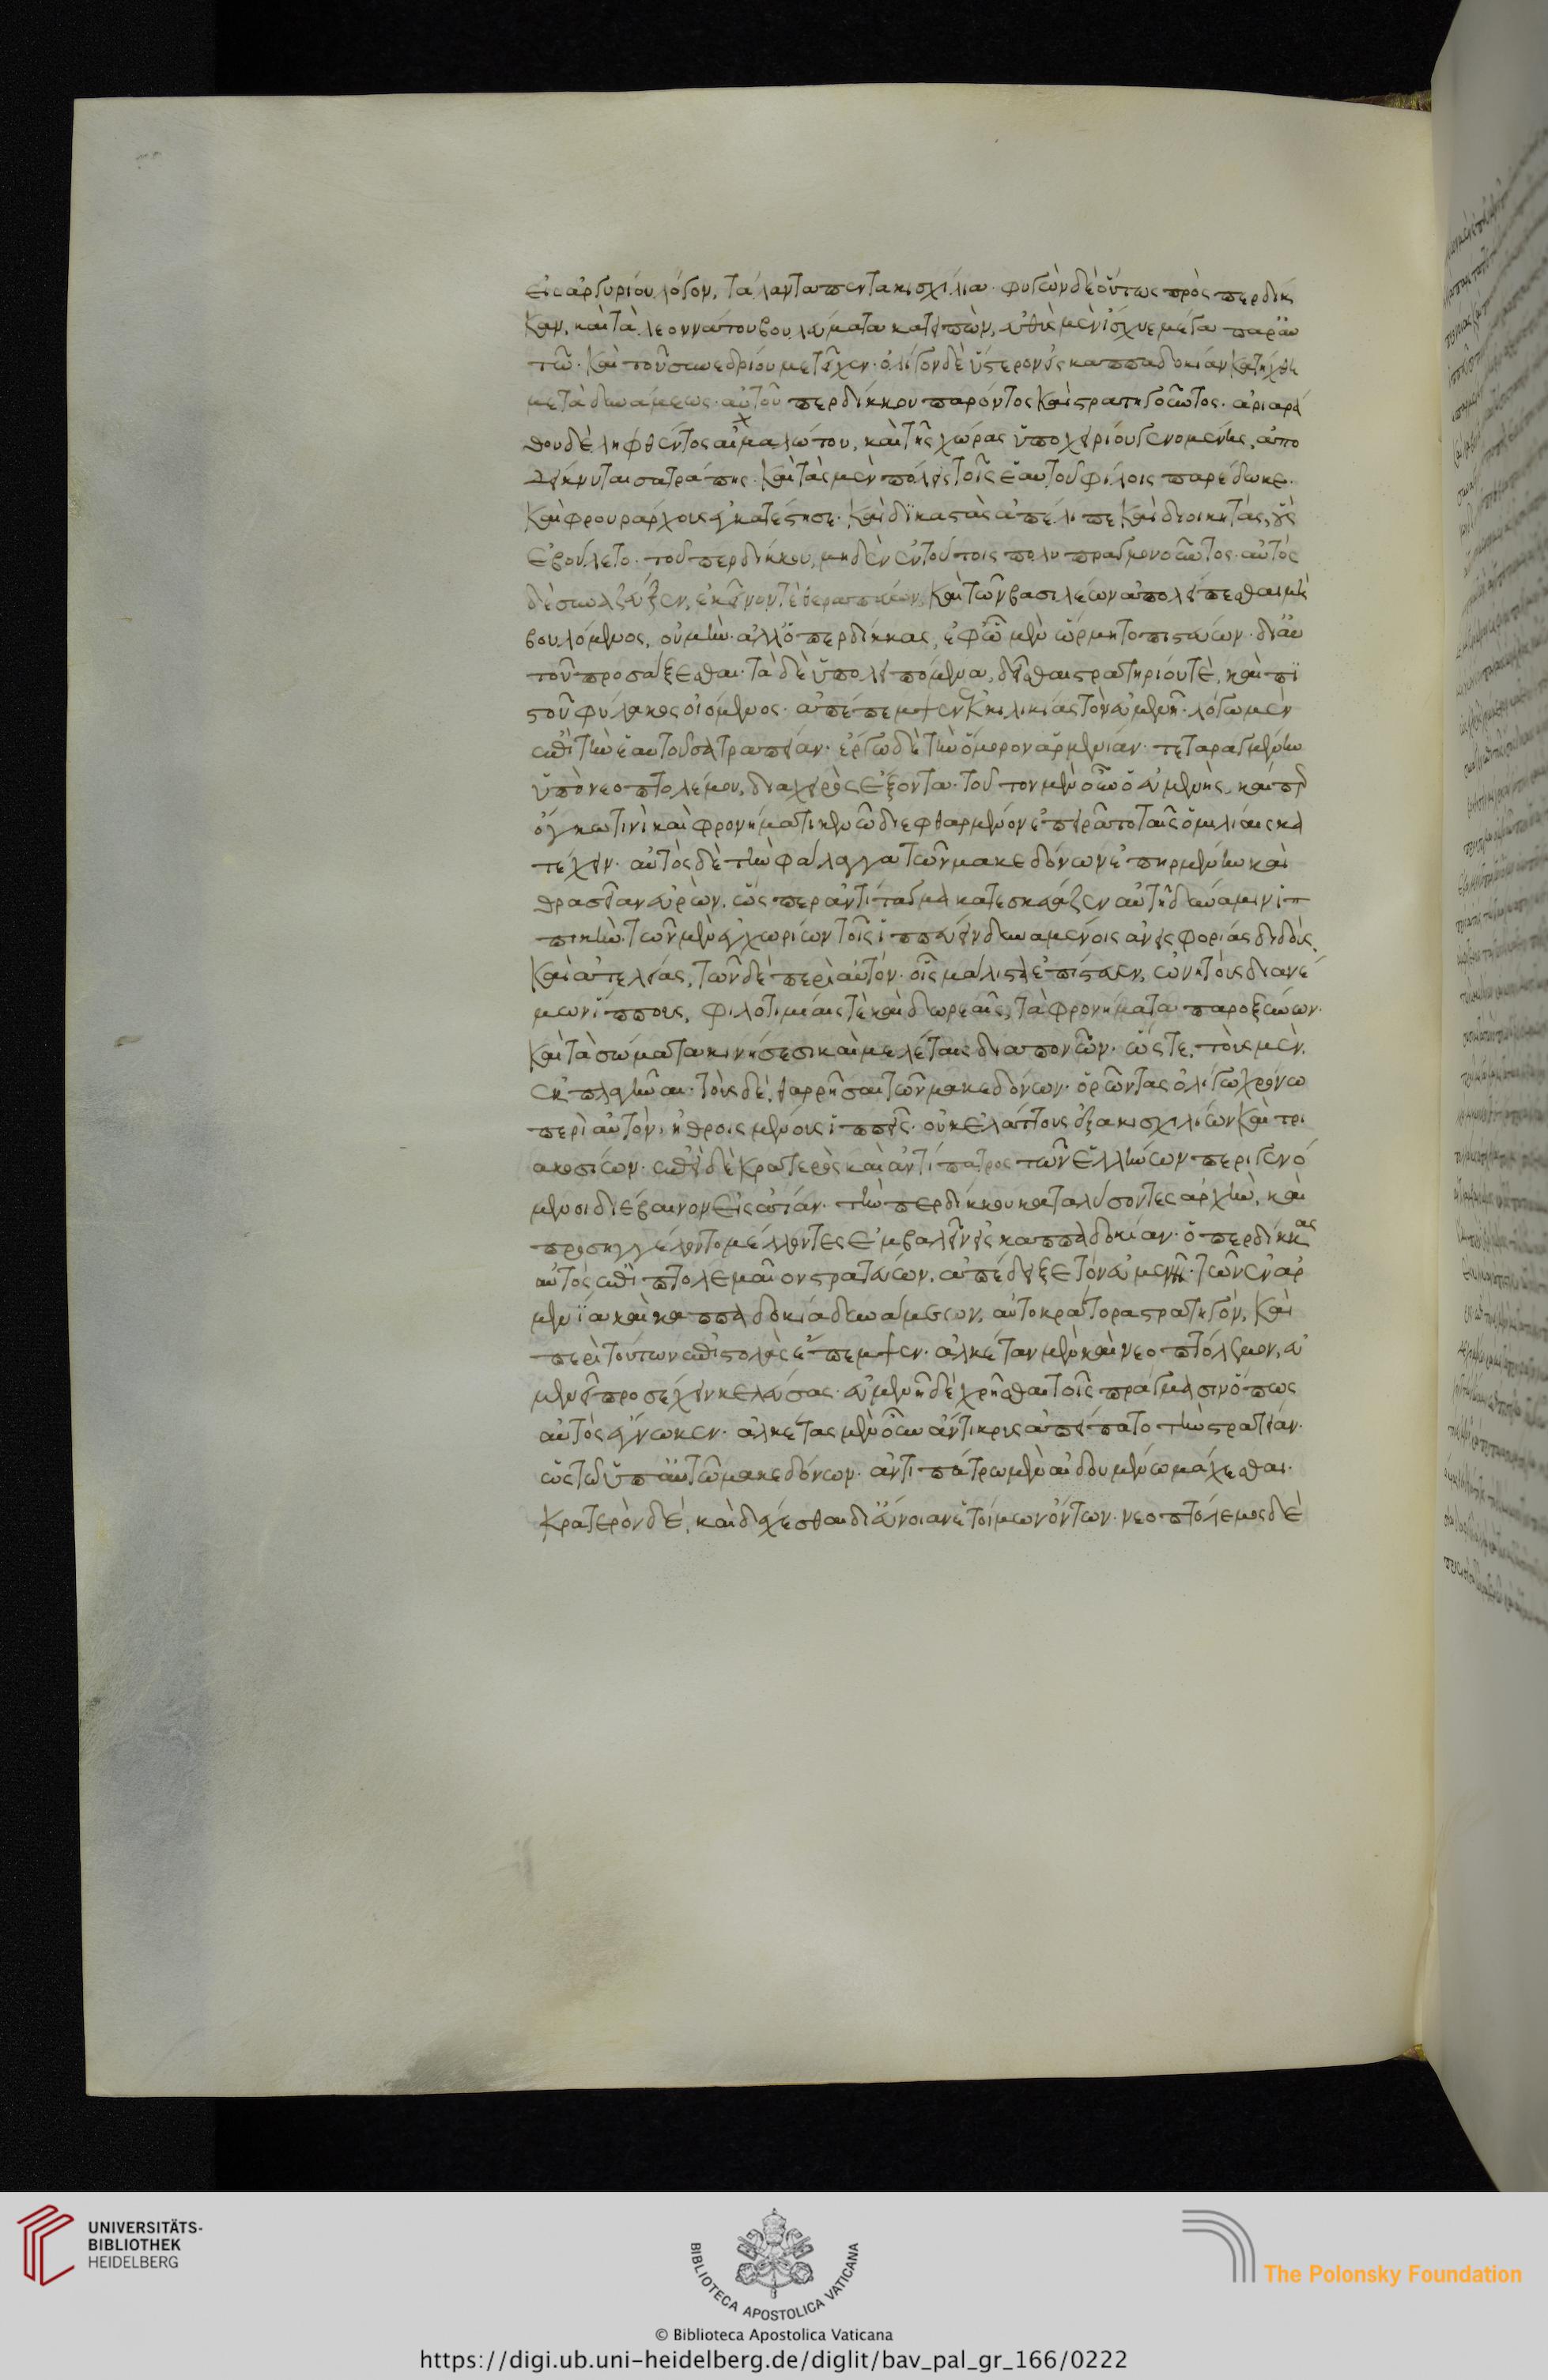 εἰς ἀργυρίου λόγον, τάλαντα πεντακισχίλια· φυγὼν δὲ οὕτως πρὸς περδίκ
καν, καὶ τὰ λεοννάτου βουλεύματα κατειπὼν, εὐθὺς μὲν ἴσχυε μέγα παρ᾽ αὐ
τῶ· καὶ τοῦ συνεδρίου μετεῖχεν· ὀλίγον δὲ ὕστερον εἰς καππαδοκίαν κατήχθη
μετὰ δυνάμεως· αὐτοῦ περδίκκου παρόντος καὶ στρατηγοῦντος· ἀριαρά
θου δὲ ληφθέντος αἰχμαλώτου, καὶ τῆς χώρας ὑποχειρίου γενομένης, ἀπο
δείκνυται σατράπης· καὶ τὰς μὲν πόλεις τοῖς ἑαυτοῦ φίλοις παρέδωκε·
καὶ φρουράρχους ἐγκατέστησε· καὶ δικαστὰς ἀπέλιπε καὶ διοικητάς, οὓς
ἐβούλετο· τοῦ περδίκκου, μηδὲν ἐν τούτοις πολυπραγμονοῦντος· αὐτὸς
δὲ συνανέζευξεν, ἐκεῖνόν τε θεραπεύων, καὶ τῶν βασιλέων ἀπολείπεσθαι μὴ
βουλόμενος, οὐ μὴν ἀλλ᾽ ὁ περδίκκας, ἐφ᾽ ὧ μὲν ὥρμητο πιστεύων· δι᾽ αὐ
τοῦ προσάξεσθαι· τὰ δὲ ὑπολειπόμενα, δεῖσθαι στρατηρίου τὲ, καὶ πι
στοῦ φύλακος οἰόμενος· ἀπέπεμψεν ἐκ κιλικίας τὸν εὐμενῆ· λόγω μὲν
ἐπὶ τὴν ἑαυτοῦ σατραπείαν· ἔργω δὲ τὴν ὅμορον ἀρμενίαν· τεταραγμένην
ὑπὸ νεοπτολέμου, διαχειρὸς ἕξοντα· τοῦτον μὲν οὖν ὁ εὐμενὴς, καίπερ
ὄγκω τινὶ καὶ φρονήματι κενῶ διεφθαρμένον ἐπειρᾶτο ταῖς ὁμιλίαις κα
τέχειν· αὐτὸς δὲ τὴν φάλαγγα τῶν μακεδόνων ἐπηρμένην καὶ
θρασεῖαν εὑρὼν, ὥσπερ ἀντίταγμα κατεσκεύαζεν αὐτῆ δύναμιν ἱπ
πικὴν· τῶν μὲν ἐγχωρίων τοῖς ἱππεύειν δυναμένοις ἀνεισφορίας διδοὺς
καὶ ἀτελείας, τῶν δὲ περὶ αὐτὸν· οἷς μάλιστα ἐπίστευεν, ὠνητοὺς διανέ
μων ἵππους, φιλοτιμίαις τὲ καὶ δωρεαῖς, τὰ φρονήματα παροξύνων·
καὶ τὰ σώματα κινήσεσι καὶ μελέταις διαπονῶν· ὥστε, τοὺς μὲν,
ἐκπλαγῆναι· τοὺς δὲ, θαρρῆσαι τῶν μακεδόνων· ὁρῶντας ὀλίγω χρόνω
περὶ αὐτὸν, ἠθροισμένους ἱππεῖς· οὐκ ἐλάττους ἑξακισχιλίων καὶ τρι
ακοσίων· ἐπεὶ δὲ κρατερὸς καὶ ἀντίπατρος τῶν ἑλλήνων περιγενό
μενοι διέβαινον εἰς ἀσίαν· τὴν περδίκκου καταλύσοντες ἀρχὴν, καὶ
προσηγγέλοντο μέλλοντες ἐμβαλεῖν εἰς καππαδοκίαν· ὁ περδίκκας
αὐτὸς ἐπὶ πτολεμαῖον στρατεύων, ἀπέδειξε τὸν εὐμενῆ· τῶν ἐν ἀρ
μενία καὶ καππαδοκία δυνάμεων, αὐτοκράτορα στρατηγόν, καὶ
περὶ τούτων ἐπιστολὰς ἔπεμψεν· ἀλκέταν μὲν καὶ νεοπτόλεμον, εὐ
μενεῖ προσέχειν κελεύσας· εὐμενῆ δὲ χρῆσθαι τοῖς πράγμασιν ὅπως
αὐτὸς ἔγνωκεν· ἀλκέτας μὲν οὖν ἄντικρυς ἀπείπατο τὴν στρατείαν·
ὡς τῶν ὑπ᾽ αὐτῶ μακεδόνων· ἀντιπάτρω μὲν αἰδουμένω μάχεσθαι·
κρατερὸν δὲ, καὶ δέχεσθαι δι᾽ εὔνοιαν ἑτοίμων ὄντων· νεοπτόλεμος δὲ
UNIVERSITÄTS-
BIBLIOTHEK
HEIDELBERG
BIBLIOTECA APOSTOLICA VATICANA
The Polonsky Foundation
© Biblioteca Apostolica Vaticana
https://digi.ub.uni-heidelberg.de/diglit/bav_pal_gr_166/0222